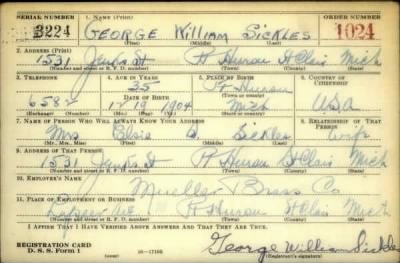 SERIAL NUMBER 1. NAME (Print) ORDER NUMBER
3224 GEORGE William SICKLES 1024
(First) (Middle) (Last)
2. ADDRESS (Print)
1531 Jenks St Pt Huron St Clair Mich
(Number and street or R. F. D. number) (Town) (County) (State)
3. TELEPHONE 4. AGE IN YEARS 5. PLACE OF BIRTH 6. COUNTRY OF CITIZENSHIP
35 Pt Huron
DATE OF BIRTH (Town or county)
6582 12 19 1904 Mich USA
(Exchange) (Number) (Mo.) (Day) (Yr.) (State or country)
7. NAME OF PERSON WHO WILL ALWAYS KNOW YOUR ADDRESS 8. RELATIONSHIP OF THAT PERSON
Mrs Elsie Sickles wife
(Mr., Mrs., Miss) (First) (Middle) (Last)
9. ADDRESS OF THAT PERSON
1531 Jenks St Pt Huron St Clair Mich
(Number and street or R. F. D. number) (Town) (County) (State)
10. EMPLOYER'S NAME
Mueller Brass Co
11. PLACE OF EMPLOYMENT OR BUSINESS
Lapeer Ave Pt Huron St Clair Mich
(Number and street or R. F. D. number) (Town) (County) (State)
I AFFIRM THAT I HAVE VERIFIED ABOVE ANSWERS AND THAT THEY ARE TRUE.
REGISTRATION CARD
D. S. S. Form 1 George William Sickles
(Registrant's signature)